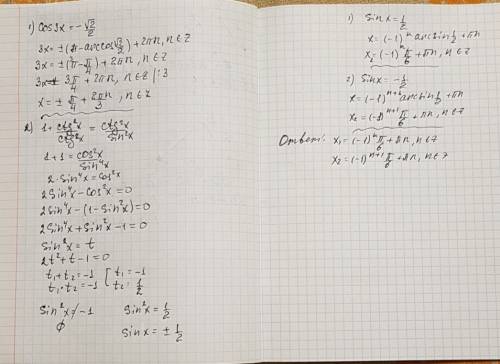 1) cos3x = -√2/2
3x = ±(π - arccos √2/2) + 2πn, n∈Z
3x = ±(π - π/4) + 2πn, n∈Z
3x = ± 3π/4 + 2πn, n∈Z |:3
x = ± π/4 + 2πn/3, n∈Z
2) 1 + ctg²x/ctg²x = ctg²x/sin²x
1 + 1 = cos²x/sin⁴x
2·sin⁴x = cos²x
2sin⁴x - cos²x = 0
2sin⁴x - (1 - sin²x) = 0
2sin⁴x + sin²x - 1 = 0
sin²x = t
2t² + t - 1 = 0
t₁ + t₂ = -1 [ t₁ = -1
t₁·t₂ = -1 t₂ = 1/2
sin²x ≠ -1 sin²x = 1/2
∅ sin x = ± 1/2
1) sin x = 1/2
x = (-1)ⁿ arcsin 1/2 + πn
x₁ = (-1)ⁿ π/6 + πn, n∈Z
2) sin x = -1/2
x = (-1)ⁿ⁺¹ arcsin 1/2 + πn
x₂ = (-1)ⁿ⁺¹ π/6 + πn, n∈Z
Ответ: x₁ = (-1)ⁿ π/6 + πn, n∈Z
x₂ = (-1)ⁿ⁺¹ π/6 + πn, n∈Z